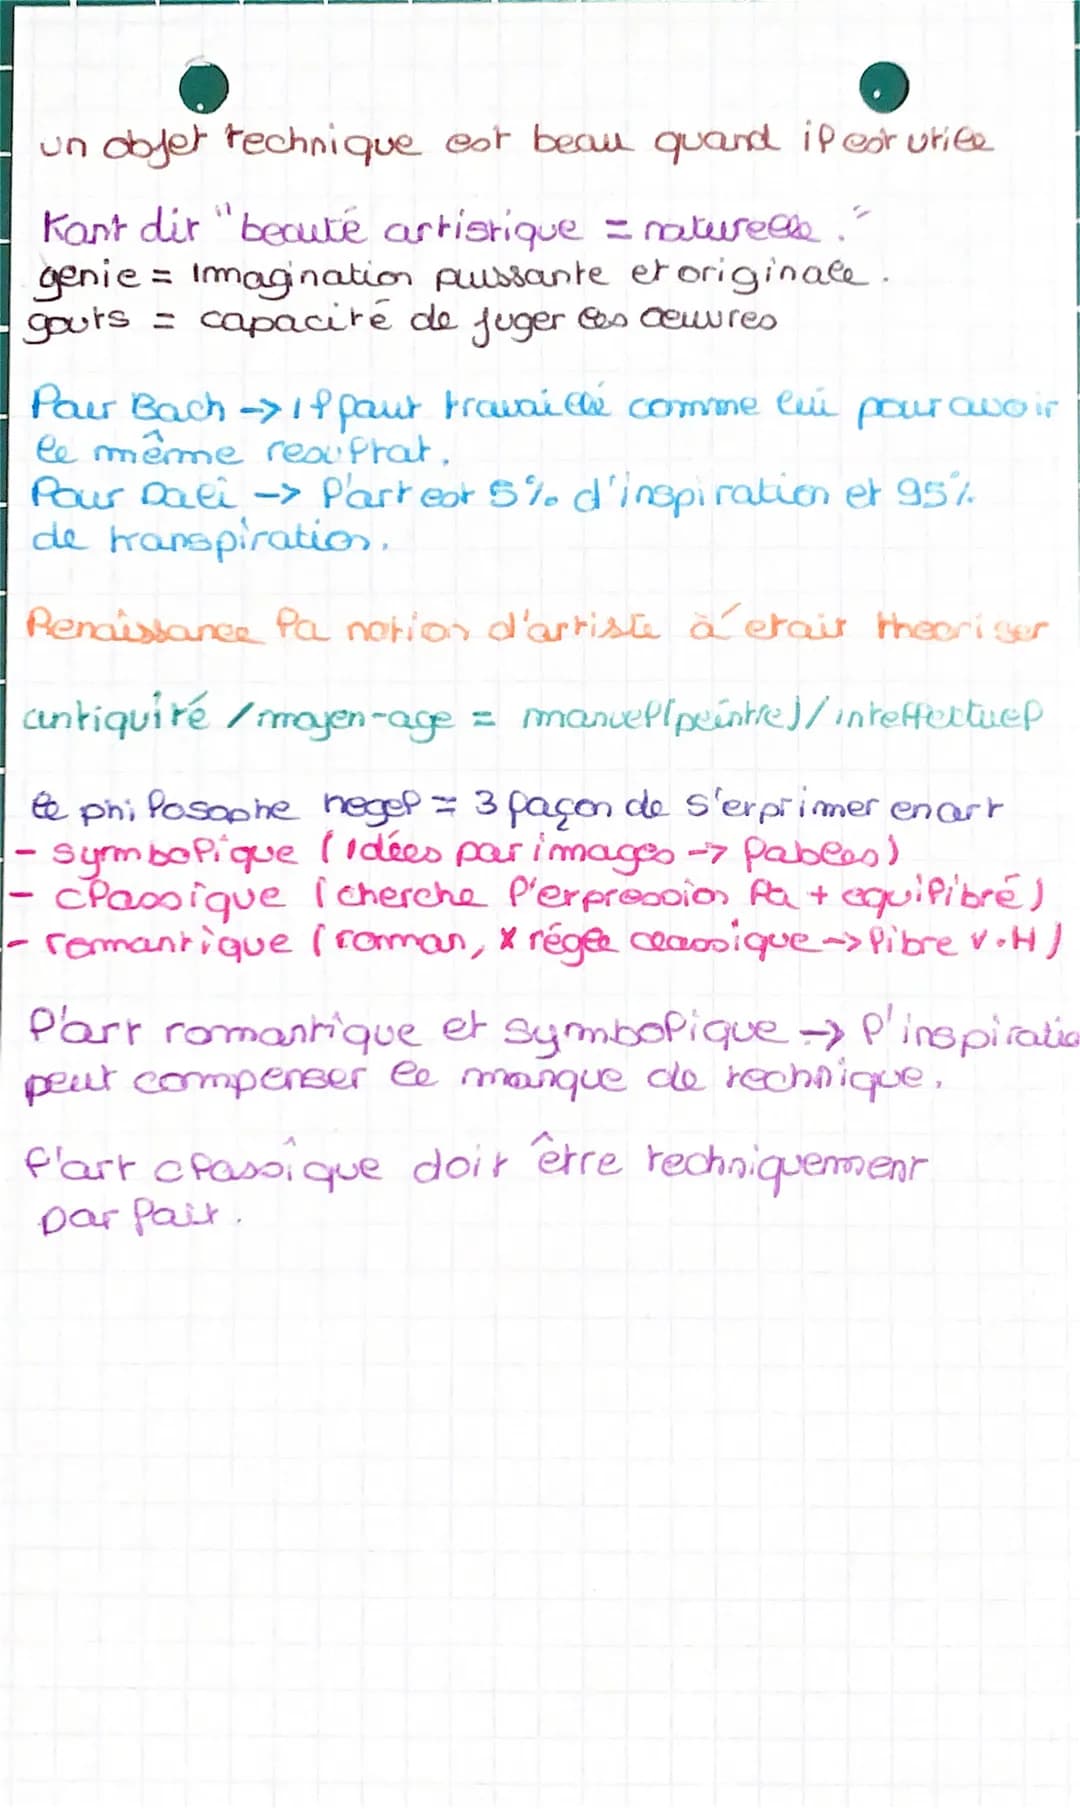 un objet technique est beau quand il est utile
Kant dit "beauté artistique = naturelle."
genie = Immagination puissante et originale.
gouts = capacité de juger les œuvres
Pour Bach -> Il faut travaillé comme lui pour avoir
le même resultat.
Pour Dali -> l'art est 5% d'inspiration et 95%
de transpiration.
Renaissance la notion d'artiste à était theoriser
antiquité / moyen-age = manuel(peintre) / intellectuel
le philosophe hegel = 3 façon de s'exprimer en art
- symbolique (Idées par images -> fables)
- classique (cherche l'expression la + equilibré)
- romantique (roman, x régle classique -> libre V.H)
l'art romantique et symbolique -> l'inspiratio
peut compenser le manque de technique.
l'art classique doit être techniquement
parfait.